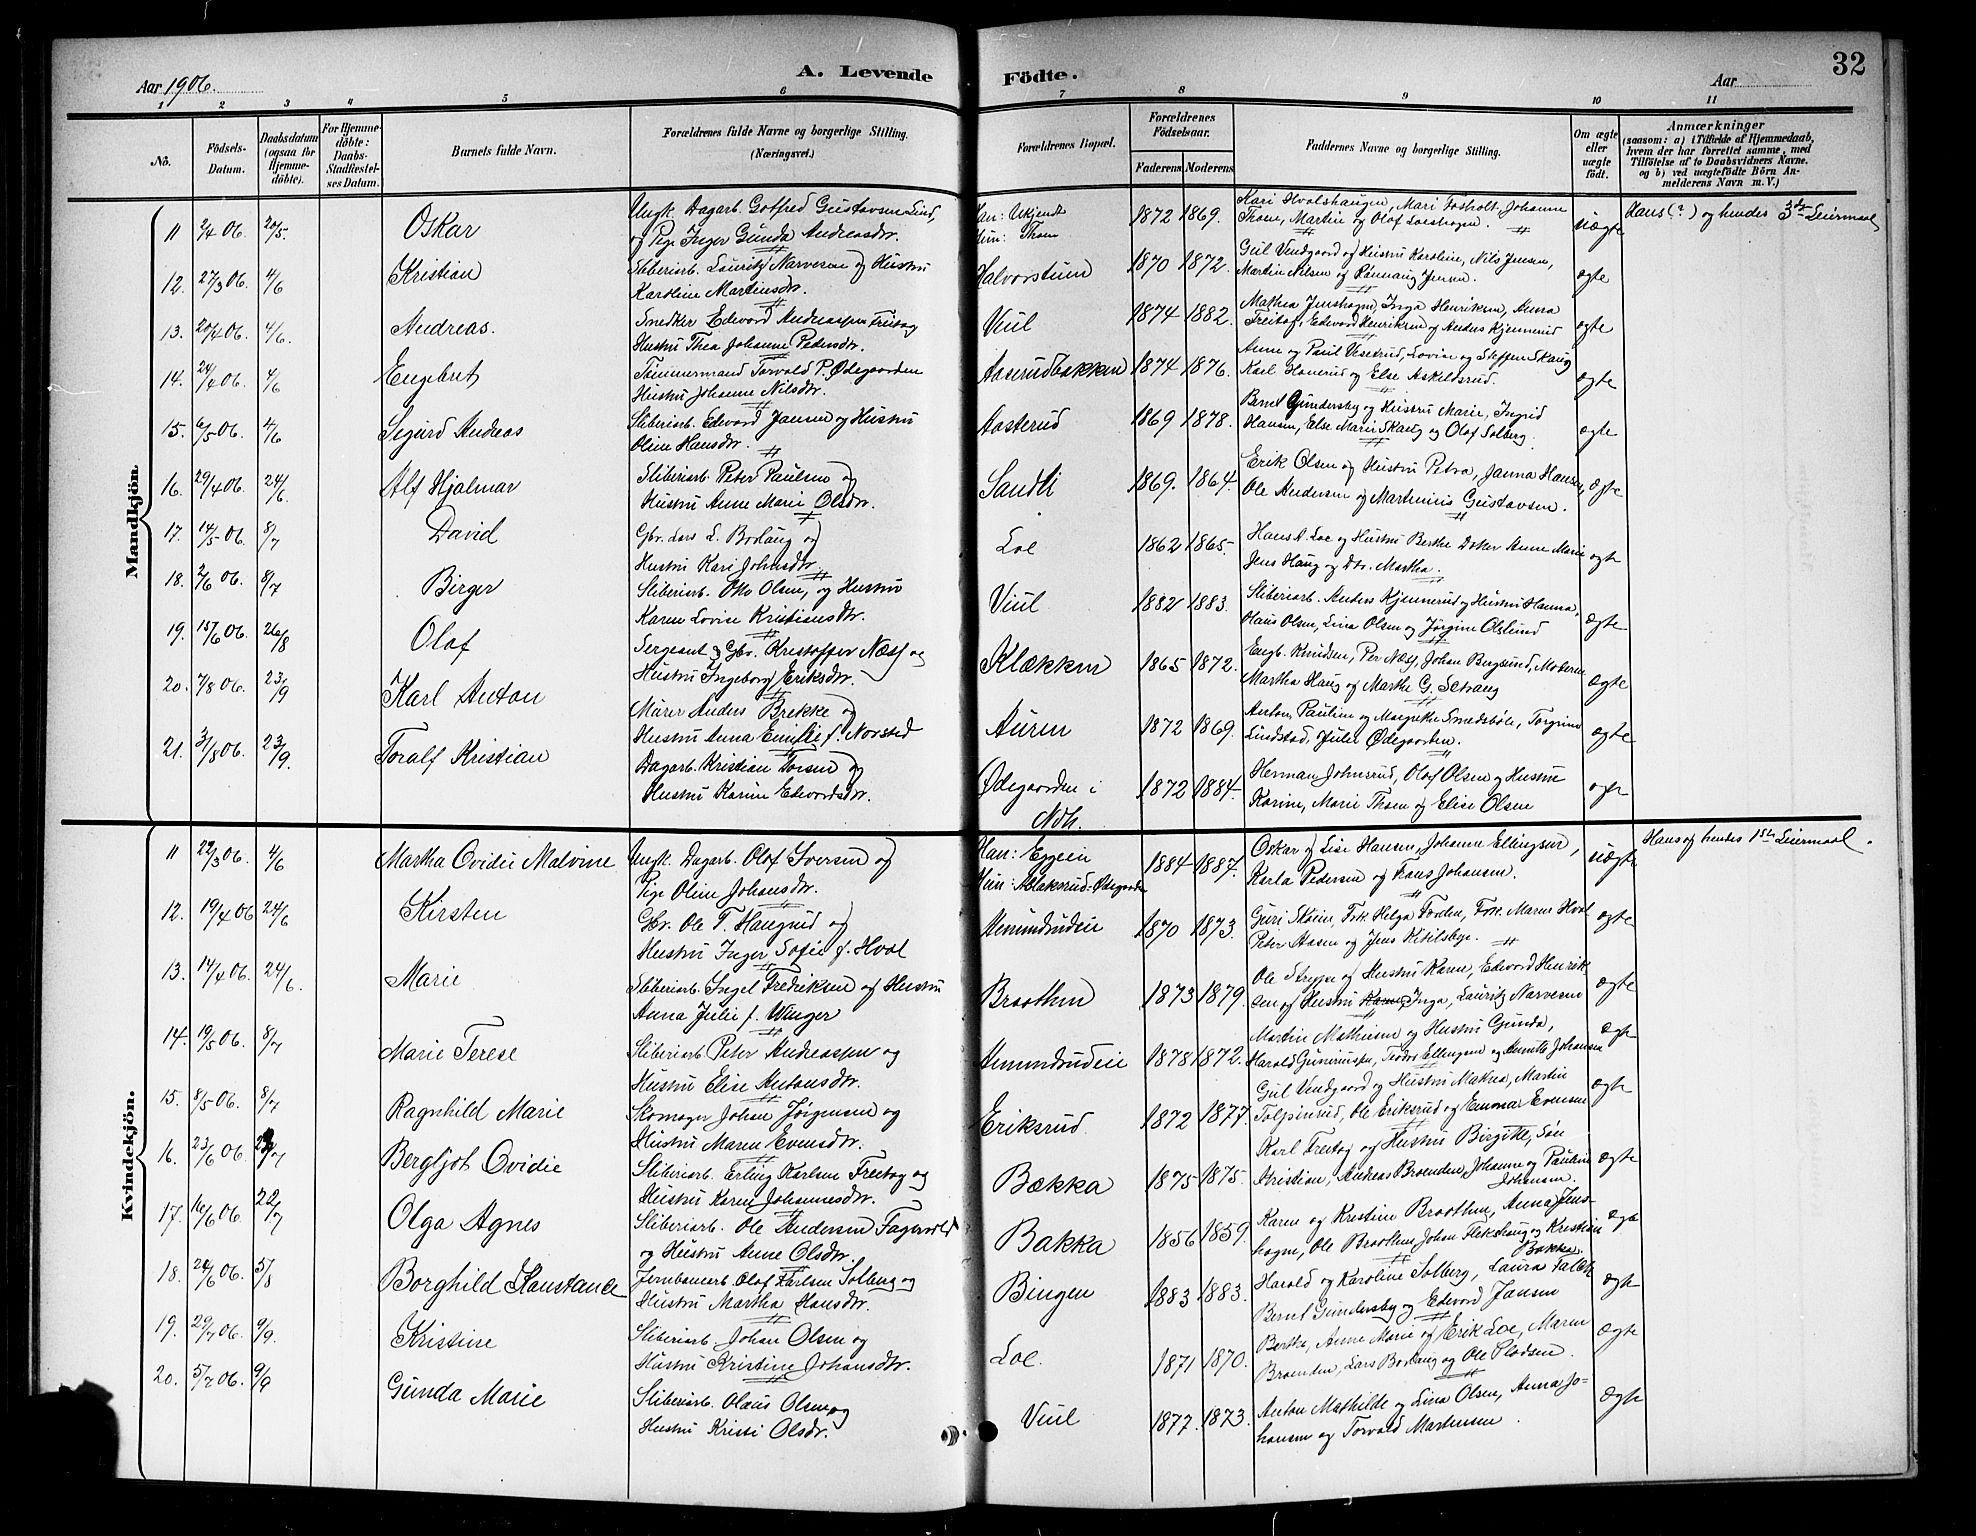 Aar 1906.
A. Levende Födte.
Aar
32
1 2 3 4 5 6 7 8 9 10 11
No.
Födsels-Datum.
Daabsdatum (ogsaa for Hjemme-döbte).
For Hjemme-döbte: Daabs-Stadfæstel-ses Datum.
Barnets fulde Navn.
Forældrenes fulde Navne og borgerlige Stilling. (Næringsvei.)
Forældrenes Bopæl.
Forældrenes Födselsaar.
Faderens Moderens
Faddernes Navne og borgerlige Stilling.
Om ægte eller uægte födt.
Anmærkninger
(saasom: a) i Tilfælde af Hjemmedaab,
hvem der har forrettet samme, med
Tilföielse af to Daabsvidners Navne.
og b) ved uægtefödte Börn An-
melderens Navn m. V.)
Mandkjön.
11 2/4 06. 20/5. Oskar
Ungk. Dagarb. Gotfred Gustavsen Lind,
og Pige Inger Gunda Andreasdr.
Han: Ukjendt
Hun: Thoen
1872 1869.
Kari Hvalshaugen, Mari Fosholt, Johanne
Thoen, Martin og Olaf Loeshagen.
uægte
Hans (?) og hendes 3die Leiermaal
12. 27/3 06. 4/6 Kristian
Sliberiarb. Lauritz Narvesen og Hustru
Karoline Martinsdr.
Halvorstuen
1870 1872.
Gul Vendgaard og Hustru Karoline, Nils Jensen,
Martin Nilsen og Rønnaug Jensen.
ægte
13. 20/4 06. 4/6. Andreas.
Snedker Edvard Andreassen Freitag
Hustru Thea Johanne Pedersdr.
Viul
1874 1882.
Mathea Jenshagen, Inga Henriksen, Anna
Freitag, Edvard Henriksen og Anders Kjennerud
ægte
14. 24/4 06. 4/6 Engebret
Tømmermand Torvald P. Ødegaarden
Hustru Johanne Nilsdr.
Aaserudbakken
1874 1876.
Anne og Paul Viserud, Lovise og Steffen Skaug
Karl Hanerud og Else Askildsrud.
ægte
15. 6/5 06. 4/6 Sigurd Andreas
Sliberiarb. Edvard Jansen og Hustru
Oline Hansdr.
Aasterud
1869 1878.
Bernt Gundersby og Hustru Marie, Ingrid
Hansen, Else Marie Skaug og Olaf Solberg.
ægte
16. 29/4 06. 24/6. Alf Hjalmar
Sliberiarb. Peter Paulsen og
Hustru Anne Marie Olsdr.
Sandli
1869. 1864.
Erik Olsen og Hustru Petra, Janna Hansen,
Ole Andersen og Martinius Gustavsen.
ægte
17. 14/5 06. 8/7 David
Gbr. Lars L. Borlaug og
Hustru Kari Johnsdr.
Loe
1862 1865.
Hans A. Loe og Hustru Berthe, Doker Anne Marie
Jens Haug og Dtr. Martha.
ægte
18. 2/6 06. 8/7 Birger
Sliberiarb. Otto Olsen, og Hustru
Karen Lovise Kristiansdr.
Viul
1882 1883.
Sliberiarb. Anders Kjennerud og Hustru Hanna,
Hans Olsen, Lina Olsen og Jørgine Oslund
ægte
19. 15/6 06. 26/8 Olaf
Sergeant & Gbr. Kristoffer Næss og
Hustru Ingeborg Eriksdr.
Klækken
1865 1872.
Engb. Knudsen, Per Næss, Johan Bergsund, Moderen
Martha Haug og Marthe G. Setrang
ægte
20. 7/8 06. 23/9 Karl Anton
Murer Anders Brekke og
Hustru Anna Emilie f. Norsted
Auren
1872 1869.
Anton, Pauline og Margrethe Smedsbøle, Torgrim
Lindstad, Julie Ødegaarden.
ægte
21. 3/8 06. 23/9. Toralf Kristian
Dagarb. Kristian Torsen og
Hustru Karine Edvardsdr.
Ødegaarden i
Ndh.
1872 1884.
Herman Johnsrud, Olaf Olsen og Hustru
Karine, Marie Thoen og Elise Olsen
ægte
Kvindekjön.
11 22/3 06. 4/6 Martha Ovidie Malvine
Ungk. Dagarb. Olaf Iversen og
Pige Oline Johansdr.
Han: Eggeeie
Hun: Ablaksrud-Ødegaarden
1884 1887.
Oskar og Lise Hansen, Johanne Ellingsen,
Karla Pedersen og Frans Johansen.
uægte
Hans og hendes 1ste Leiermaal.
12. 19/4 06 24/6 Kirsten
Gbr. Ole T. Haugrud og
Hustru Inger Sofie f. Hval
Hemmdrudeie
1870 1873.
Guri Skøien, Frk. Helga Torden, Frk. Maren Hval
Peter Aasen og Jens Kittilsbye.
ægte
13. 14/4 06. 24/6. Marie
Sliberiarb. Ingel Fredriksen og Hustru
Anna Julie f. Winger
Braathen
1873 1879.
Ole Strygge og Hustru Karen, Edvard Henrik
sen og Hustru Karen, Inga, Lauritz Narvesen
ægte
14. 19/5 06. 8/7 Marie Terese
Sliberiarb. Peter Andreassen og
Hustru Elise Antonsdr.
Hemmdrudeie
1878 1872.
Martin Mathiesen og Hustru Gunda,
Harald Guneriussen, Teodor Ellingsen og Annette Johansen
ægte
15. 8/5 06. 8/7 Ragnhild Marie
Skomager Johan Jørgensen og
Hustru Maren Evensdr.
Eriksrud
1872 1877.
Gul Vendgaard og Hustru Mathea, Martin
Tolpinrud, Ole Eriksrud og Emma Evensen
ægte
16. 23/6 06. 29/7 Bergljot Ovidie
Sliberiarb. Erling Karlsen Freitag og
Hustru Karen Johannesdr.
Bækka
1875 1875.
Karl Freitag og Hustru Birgitte, Søn
Kristian, Andreas Braenden, Johanne og Pauline
Johansen.
ægte
17. 16/6 06. 22/7 Olga Agnes
Sliberiarb. Ole Andersen Fagervold
og Hustru Anne Olsdr.
Bakka
1856 1859.
Karen og Kristine Braathen, Anna Jens-
hagen, Ole Braathen, Johan Flekshaug og Kristian
Bakka.
ægte
18. 24/6 06. 5/8 Borghild Konstance
Jernbanearb. Olaf Karlsen Solberg og
Hustru Martha Hansdr.
Bingen
1883 1883.
Harald og Karoline Solberg, Laura Falck
Bernt Gundersby og Edvard Jansen
ægte
19. 29/7 06. 9/9. Kristine
Sliberiarb. Johan Olsen og
Hustru Kristine Johansdr.
Loe.
1871 1870.
Berthe, Anne Marie og Erik Loe, Maren
Braenden, Lars Borlaug og Ole Pladsen.
ægte
20. 5/7 06. 9/9 Gunda Marie
Sliberiarb. Olaus Olsen og
Hustru Kristi Olsdr.
Viul
1877. 1873.
Anton Mathilde og Lina Olsen, Anna Jo-
hansen og Torvald Martensen.
ægte